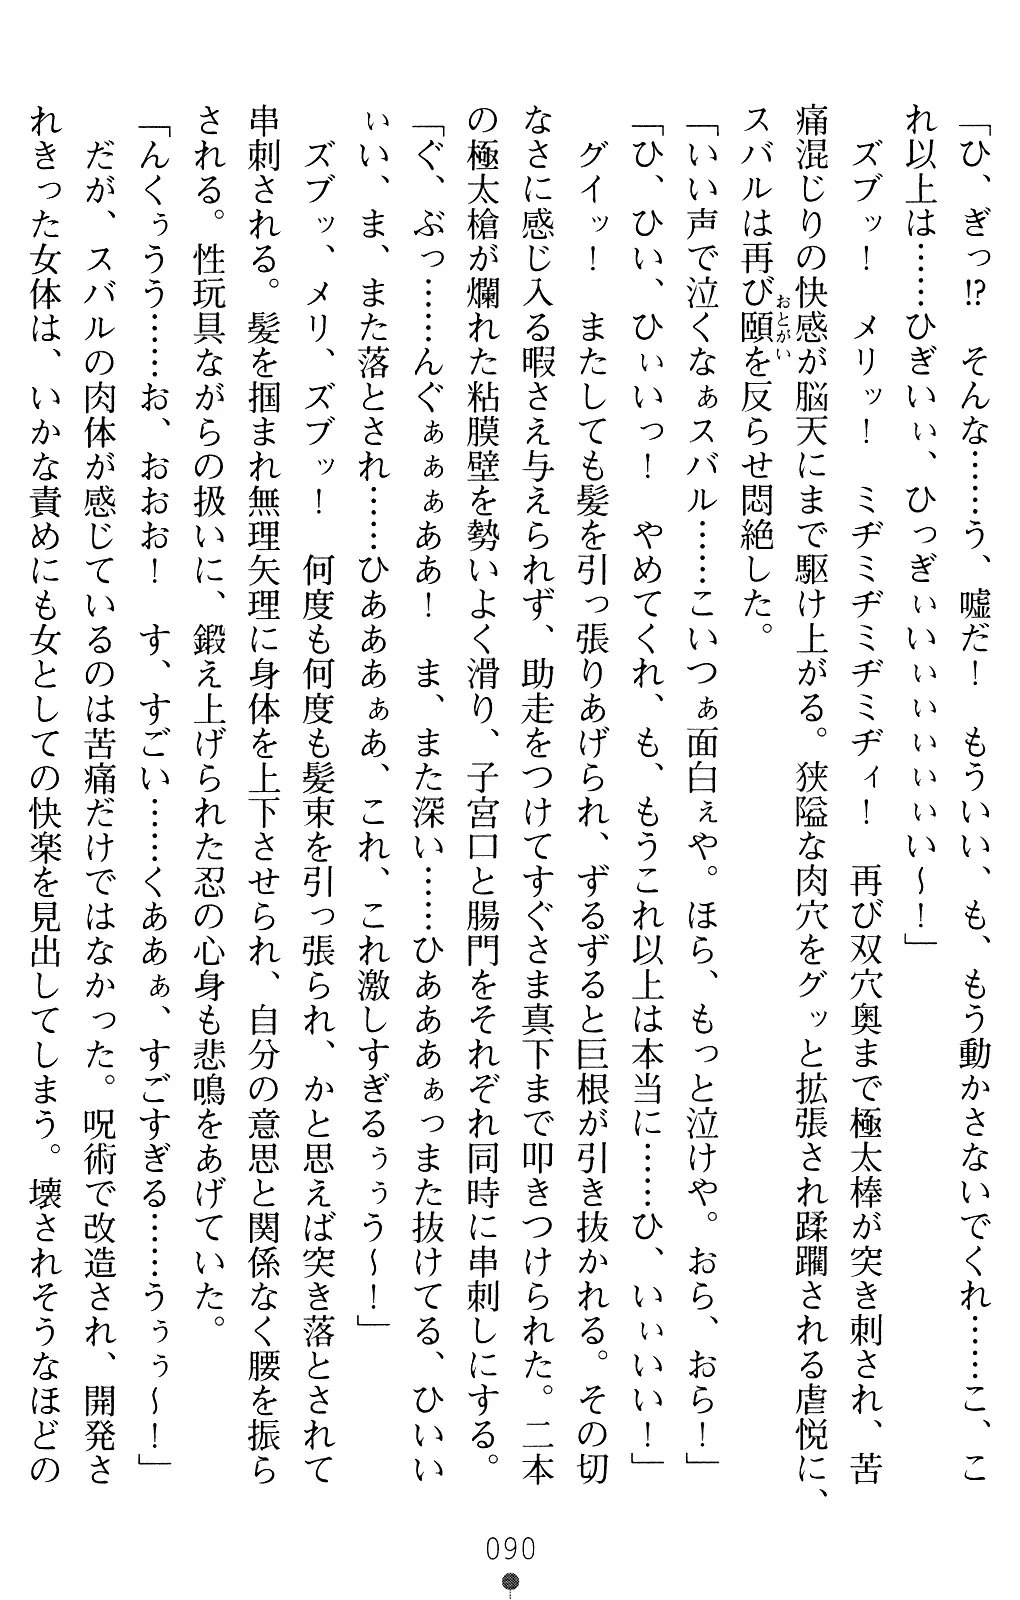 「ひ、ぎっ!?　そんな……う、嘘だ！　もういい、も、もう動かさないでくれ……こ、こ
れ以上は……ひぎいぃ、ひっぎぃいぃいぃいぃい～！」
　ズブッ！　メリッ！　ミヂミヂミヂミヂィ！　再び双穴奥まで極太棒が突き刺され、苦
痛混じりの快感が脳天にまで駆け上がる。狭隘な肉穴をグッと拡張され蹂躙される虐悦に、
スバルは再び頤おとがいを反らせ悶絶した。
「いい声で泣くなぁスバル……こいつぁ面白ぇや。ほら、もっと泣けや。おら、おら！」
「ひ、ひい、ひぃいっ！　やめてくれ、も、もうこれ以上は本当に……ひ、いぃいい！」
　グイッ！　またしても髪を引っ張りあげられ、ずるずると巨根が引き抜かれる。その切
なさに感じ入る暇さえ与えられず、助走をつけてすぐさま真下まで叩きつけられた。二本
の極太槍が爛れた粘膜壁を勢いよく滑り、子宮口と腸門をそれぞれ同時に串刺しにする。
「ぐ、ぶっ……んぐぁぁぁああ！　ま、また深い……ひあああぁっまた抜けてる、ひいい
ぃい、ま、また落とされ……ひああああぁあ、これ、これ激しすぎるぅぅう～！」
　ズブッ、メリ、ズブッ！　何度も何度も髪束を引っ張られ、かと思えば突き落とされて
串刺される。髪を掴まれ無理矢理に身体を上下させられ、自分の意思と関係なく腰を振ら
される。性玩具ながらの扱いに、鍛え上げられた忍の心身も悲鳴をあげていた。
「んくぅうう……お、おおお！　す、すごい……くああぁ、すごすぎる……うぅぅ～！」
　だが、スバルの肉体が感じているのは苦痛だけではなかった。呪術で改造され、開発さ
れきった女体は、いかな責めにも女としての快楽を見出してしまう。壊されそうなほどの
090